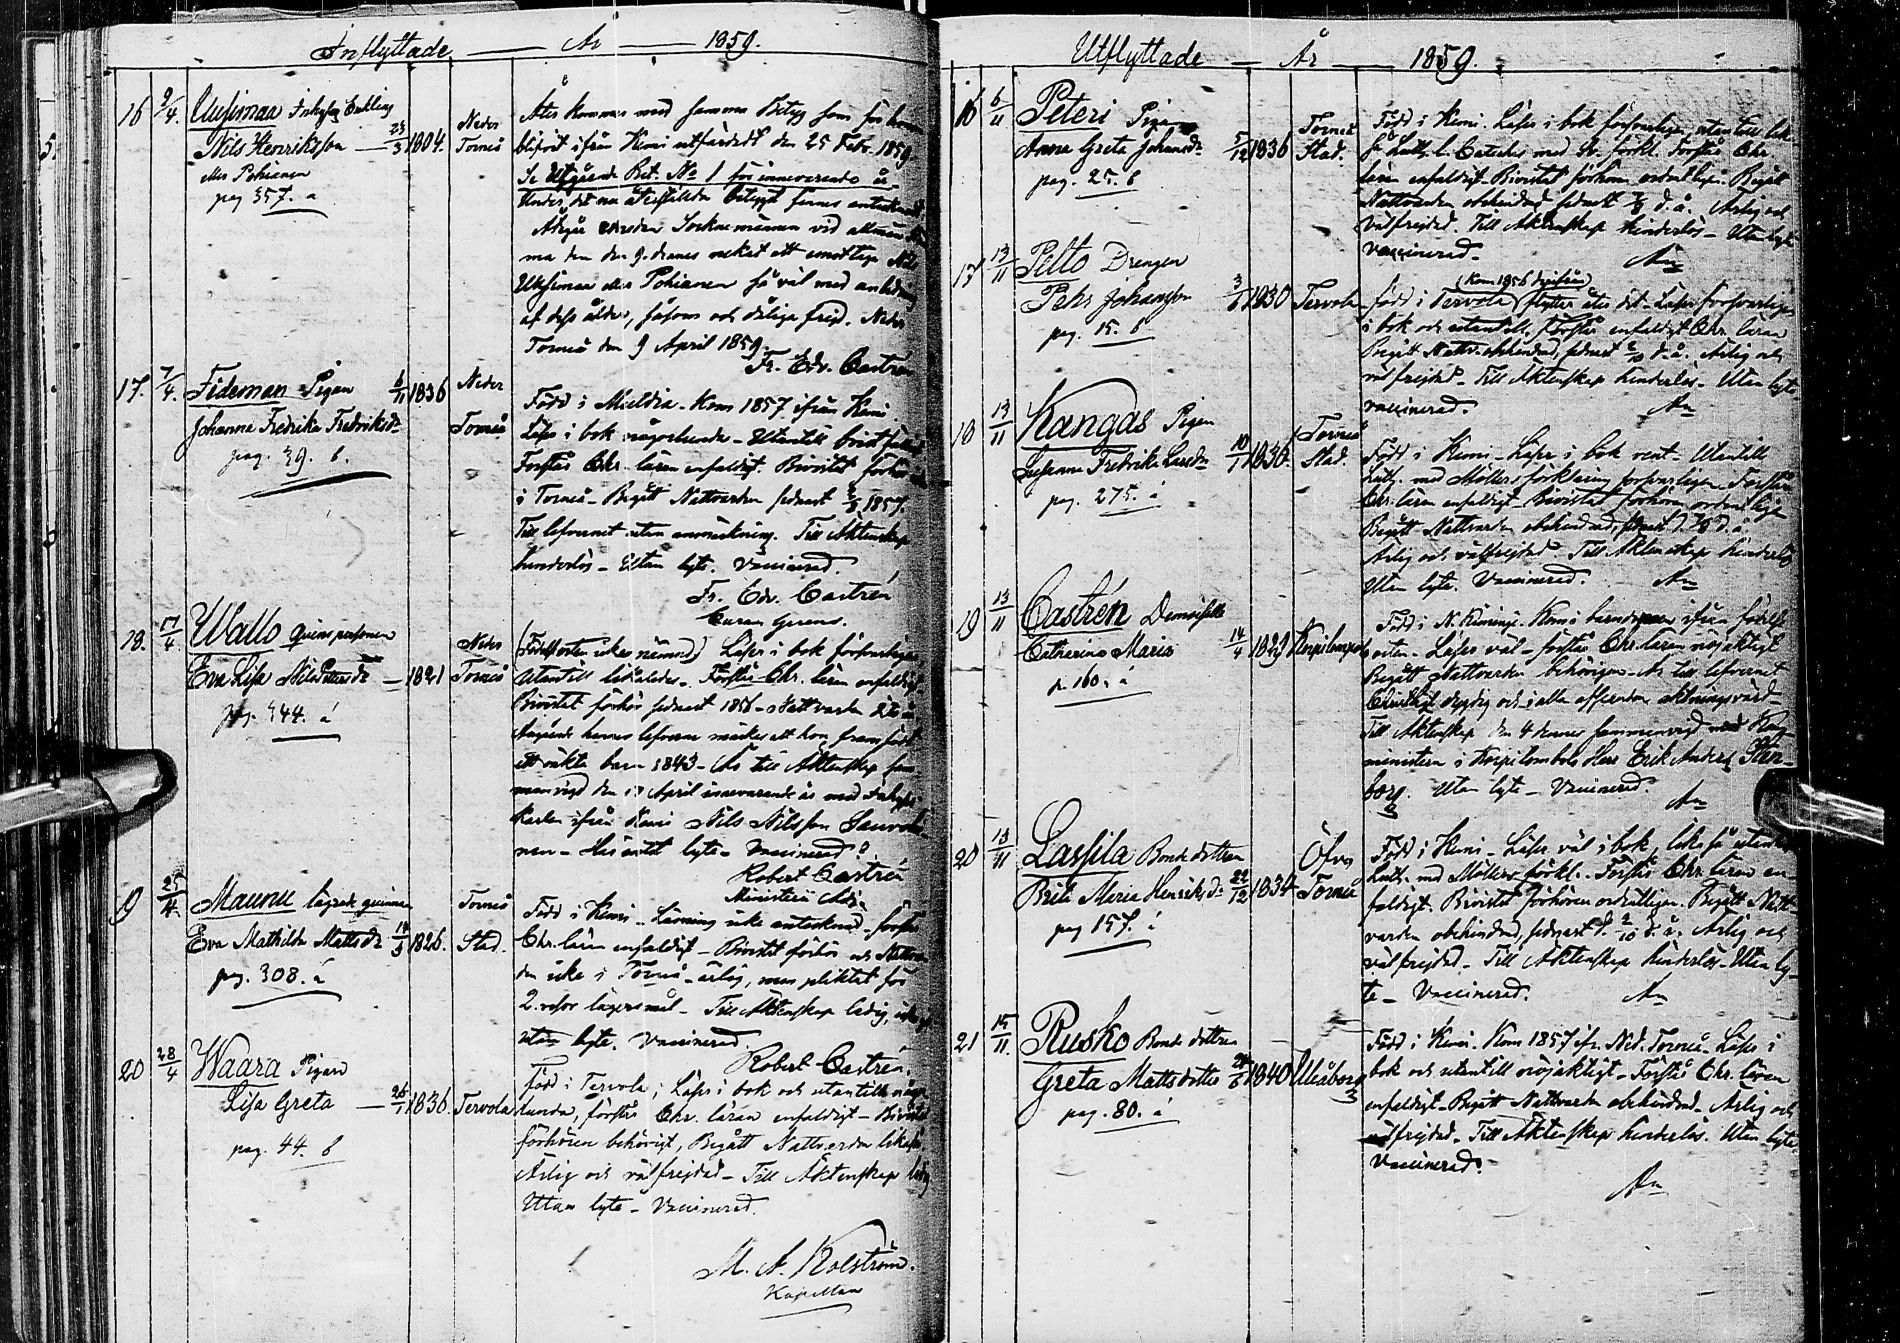 Inflyttade — År — 1859.
16 9/4. Uusimaa Inhyses Enkling
Nils Henriksson — 23/3 1804. Neder Torneå
eller Pohianen
pag 357. a
Åter kommer med samma Betyg som för honom
blifvit ifrån Kemi utfärdadt den 25 Febr. 1859
Se Utgående Bet. No 1 för innevarande år
Under det nu återstälda betyget finnes antecknadt
Sockne männen vid
den 9. dennes nekat att emottaga Nils
Uusimaa eller Pohianen så väl med anledning
af dess ålder, såsom och dålige frejd. Neder
Torneå den 9 April 1859.
Fr. Edv. Castrén
17. 7/4. Fideman Pigan 6/11 1836 Neder
Johanna Fredrika Fredriksdr Torneå
pag. 39. b.
Född i — Kom 1857 ifrån Kemi
Läser i bok någorlunda — Utantill
Förstår Chr. läran enfaldigt. Bivistat förhör
i Torneå — Begått Nattvarden sednast 1857.
Till lefvernet utan anmärkning. Till Äktenskap
hinderlös — Utan lyte. Vaccinerad.
Fr. Edv. Castrén
Curam Gerens.
18. 17/4 Wallo qvinspersonen
Eva Lisa Nils Pettersdr — 1821 Neder Torneå
pag. 344. a
(Födelseorten icke nämnd) Läser i bok försvarligen
Utantill — Förstår Chr. läran enfaldigt
Bivistat förhör sednast 1858 — Nattvarden
Angående hennes lefverne märkes att hon framfödt
ett oäkta barn 1843 — Är till Äktenskap sam-
manvigd den April innevarande år med Inhyses
karlen ifrån Kemi Nils Nilsson
nen — lyte — Vaccinerad?
Robert Castrén
Ministerii Adj.
9 25/4. Maunu lägrade qvinnan Torneå
Eva Mathilda Mattsdr 18/3 1826. Stad.
pag. 308. a
Född i Kemi — Läsning icke antecknad — förstår
Chr. läran enfaldigt — Bivistat förhör och Nattvar
den icke i Torneå — ärlig, men pliktat för
2. resor lägersmål — Till Äktenskap ledig,
utan lyte. Vaccinerad.
Robert Castrén
20 28/4 Waara Pigan
Lisa Greta — 26/1 1836. Tervola
pag. 44. b
Född i Tervola; Läser i bok och utantill någor
lunda, förstår Chr. läran enfaldigt — Bivistat
förhören behörigt, Begått Nattvarden likaså
Ärlig och välfrejdad — Till Äktenskap ledig
Utan lyte — Vaccinerad.
M. A. Kolström.
Kapellan
Utflyttade — År — 1859.
16 6/11 Peteri Pigan
Anna Greta Johansdr 5/12 1836 Torneå Stad.
pag. 25. b
Född i Kemi. Läser i bok försvarligen, utantill lika
så Luth. l. Cateches med Sv. förkl. Förstår Chr.
läran enfaldigt. Bivistat förhören ordentligen. Begått
Nattvarden obehindrad sednast d. å. Ärlig och
välfrejdad. Till Äktenskap hinderlös — Utan lyte
vaccinerad.
An
17 13/11 Pelto Drengen
Pehr Johansson 3/6 1830 Tervola
pag. 15. b
(Kom 1856 derifrån)
född i Tervola flyttar åter dit. Läser försvarligen
i bok och utantill, Förstår enfaldigt Chr. läran
Begått Nattv. obehindrad, sednast 2/10 d. å. Ärlig och
välfrejdad — Till Äktenskap hinderlös — Utan lyte.
vaccinerad.
An
18 13/11 Kangas Pigan
Susanna Fredrika Larsdr 10/1 1836. Torneå Stad.
pag. 275. a
Född i Kemi — Läser i bok rent — Utantill
Luth. med Möllers förklaring försvarligen. Förstår
Chr. läran enfaldigt — Bivistat förhören ordentligen
Begått Nattvarden obehindrad, sednast d. å.
Ärlig och välfrejdad. Till Äktenskap hinderlös
Utan lyte. Vaccinerad.
An
19 13/11 Castrén Demoiselle
Catharina Maria 14/4 1829 Korpilombolo
p. 160. a
Född i N. Kiminge. Kom i barndomen ifrån födelse
orten — Läser väl — förstår Chr. läran nöjaktigt
Begått Nattvarden behörigen — Är till lefvernet
Christligt dygdig och i alla afseenden aktningsvärd —
Till Äktenskap den 4 dennes sammanvigd med Kom-
ministern i Korpilombolo Herr Erik Anders Sten-
borg. Utan lyte — Vaccinerad.
An
20 13/11 Lassila Bonde dottren
Brita Maria Henriksdr 22/12 1834 Öfver Torneå
pag 157. a
Född i Kemi — Läser väl i bok, lika så utantill
Luth. med Möllers förkl. Förstår Chr. läran en-
faldigt. Bivistat förhören ordentligen. Begått Natt-
varden obehindrad, sednast d. 2/10 d. å. Ärlig och
välfrejdad — Till Äktenskap hinderlös — Utan ly-
te — Vaccinerad.
An
21 15/11 Rusko Bonde dottren
Greta Mattsdotter 1840 Uleåborg
pag. 80. a
Född i Kemi. Kom 1857 ifr. Ned. Torneå — Läser i
bok och utantill nöjaktigt — Förstår Chr. läran
enfaldigt — Begått Nattvarden obehindrad — Ärlig och
välfrejdad — Till Äktenskap hinderlös. Utan lyte.
Vaccinerad.
An